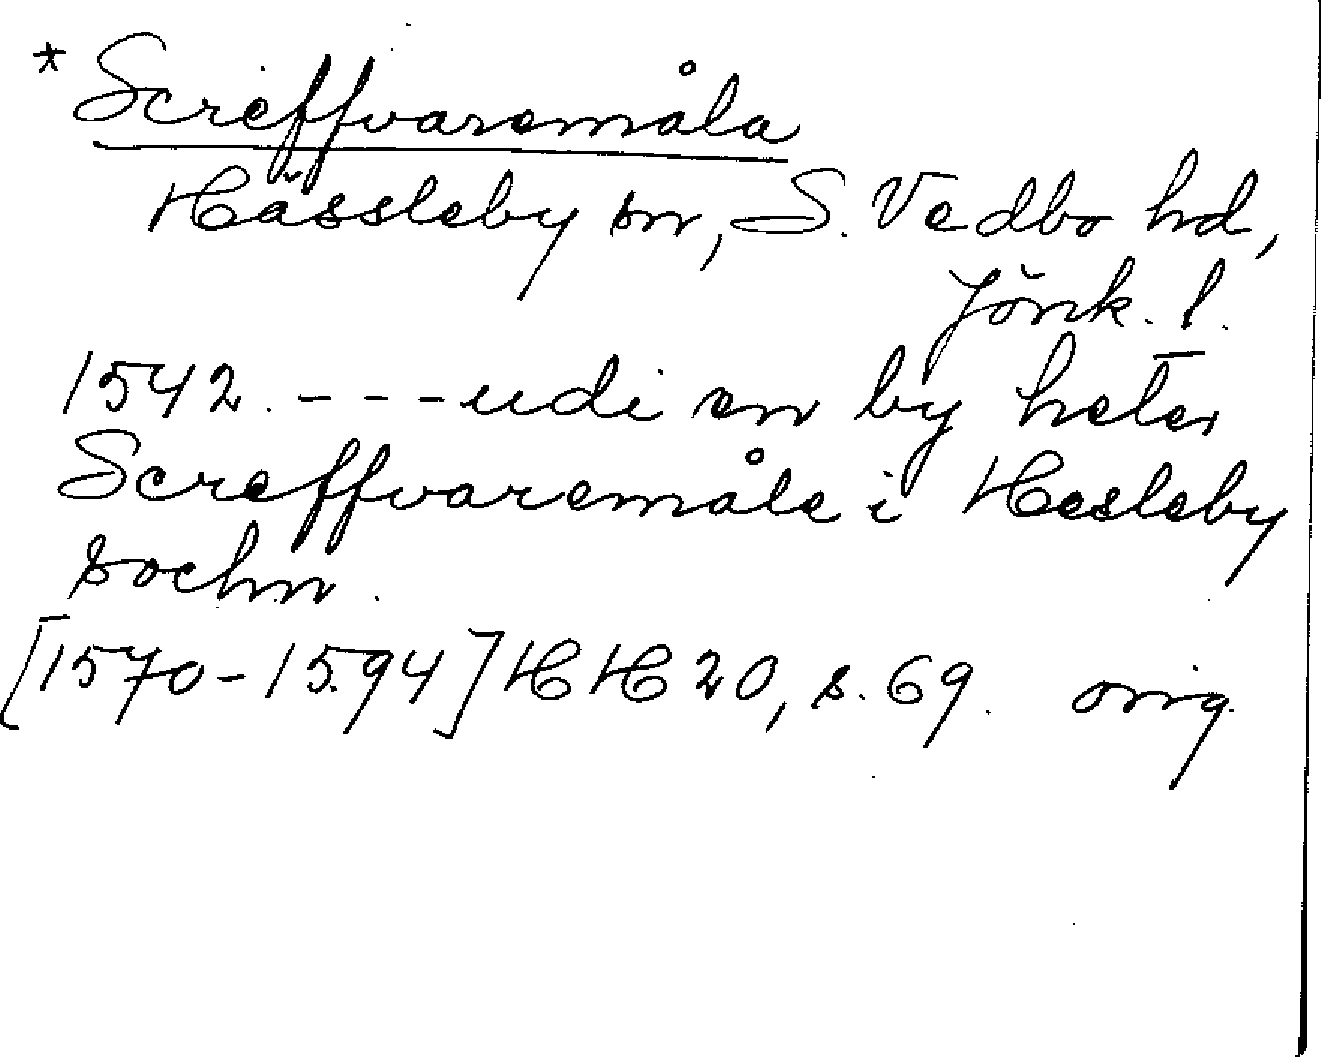 * Screffvaremåla
Hässleby sn, S. Vedbo hd,
Jönk. l.
1542. - - - udi en by heter
Screffvaremåle i Hesleby
sochn.
[1570-1594] HH 20, s. 69. orig.